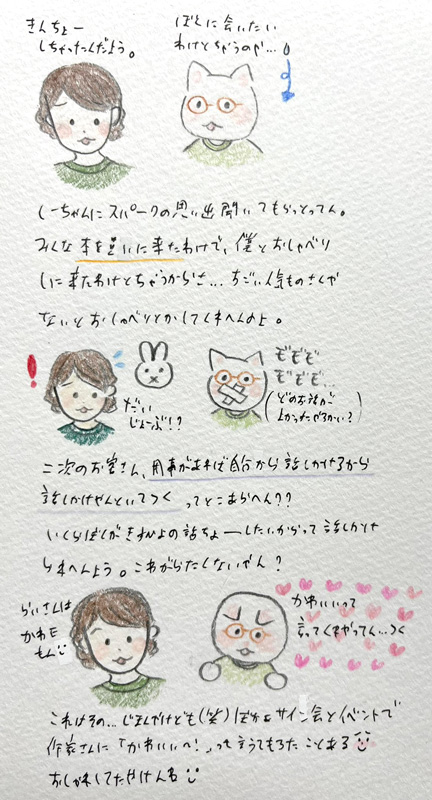 きんちょー
しちゃったんだよう。
ぼくに会いたい
わけとちゃうのや…。
しーちゃんにスパークの思い出聞いてもらっとってん。
みんな本を買いに来たわけで、僕とおしゃべり
しに来たわけとちゃうからさ…すごい人気ものさんや
ないとおしゃべりとかしてくれへんのよ。
だい
じょーぶ!?
ぞぞぞ
ぞぞぞ…
(どのお話が
よかったやろかい?)
二次のお客さん、用事があれば自分から話しかけるから
話しかけやんといてっつ ってとこあらへん??
いくらぼくが
の話ちょーしたいからって話しかけ
られへんよう。こわがらたしないやん?
らいさんは
かわE
もん
かわいいって
言ってくれやってん…っつ
これはその…じまんやけども(笑)ぼかぁサイン会とイベントで
作家さんに「かわいい〜!」って言うてもろたことある
おしゃれしてたやけんね